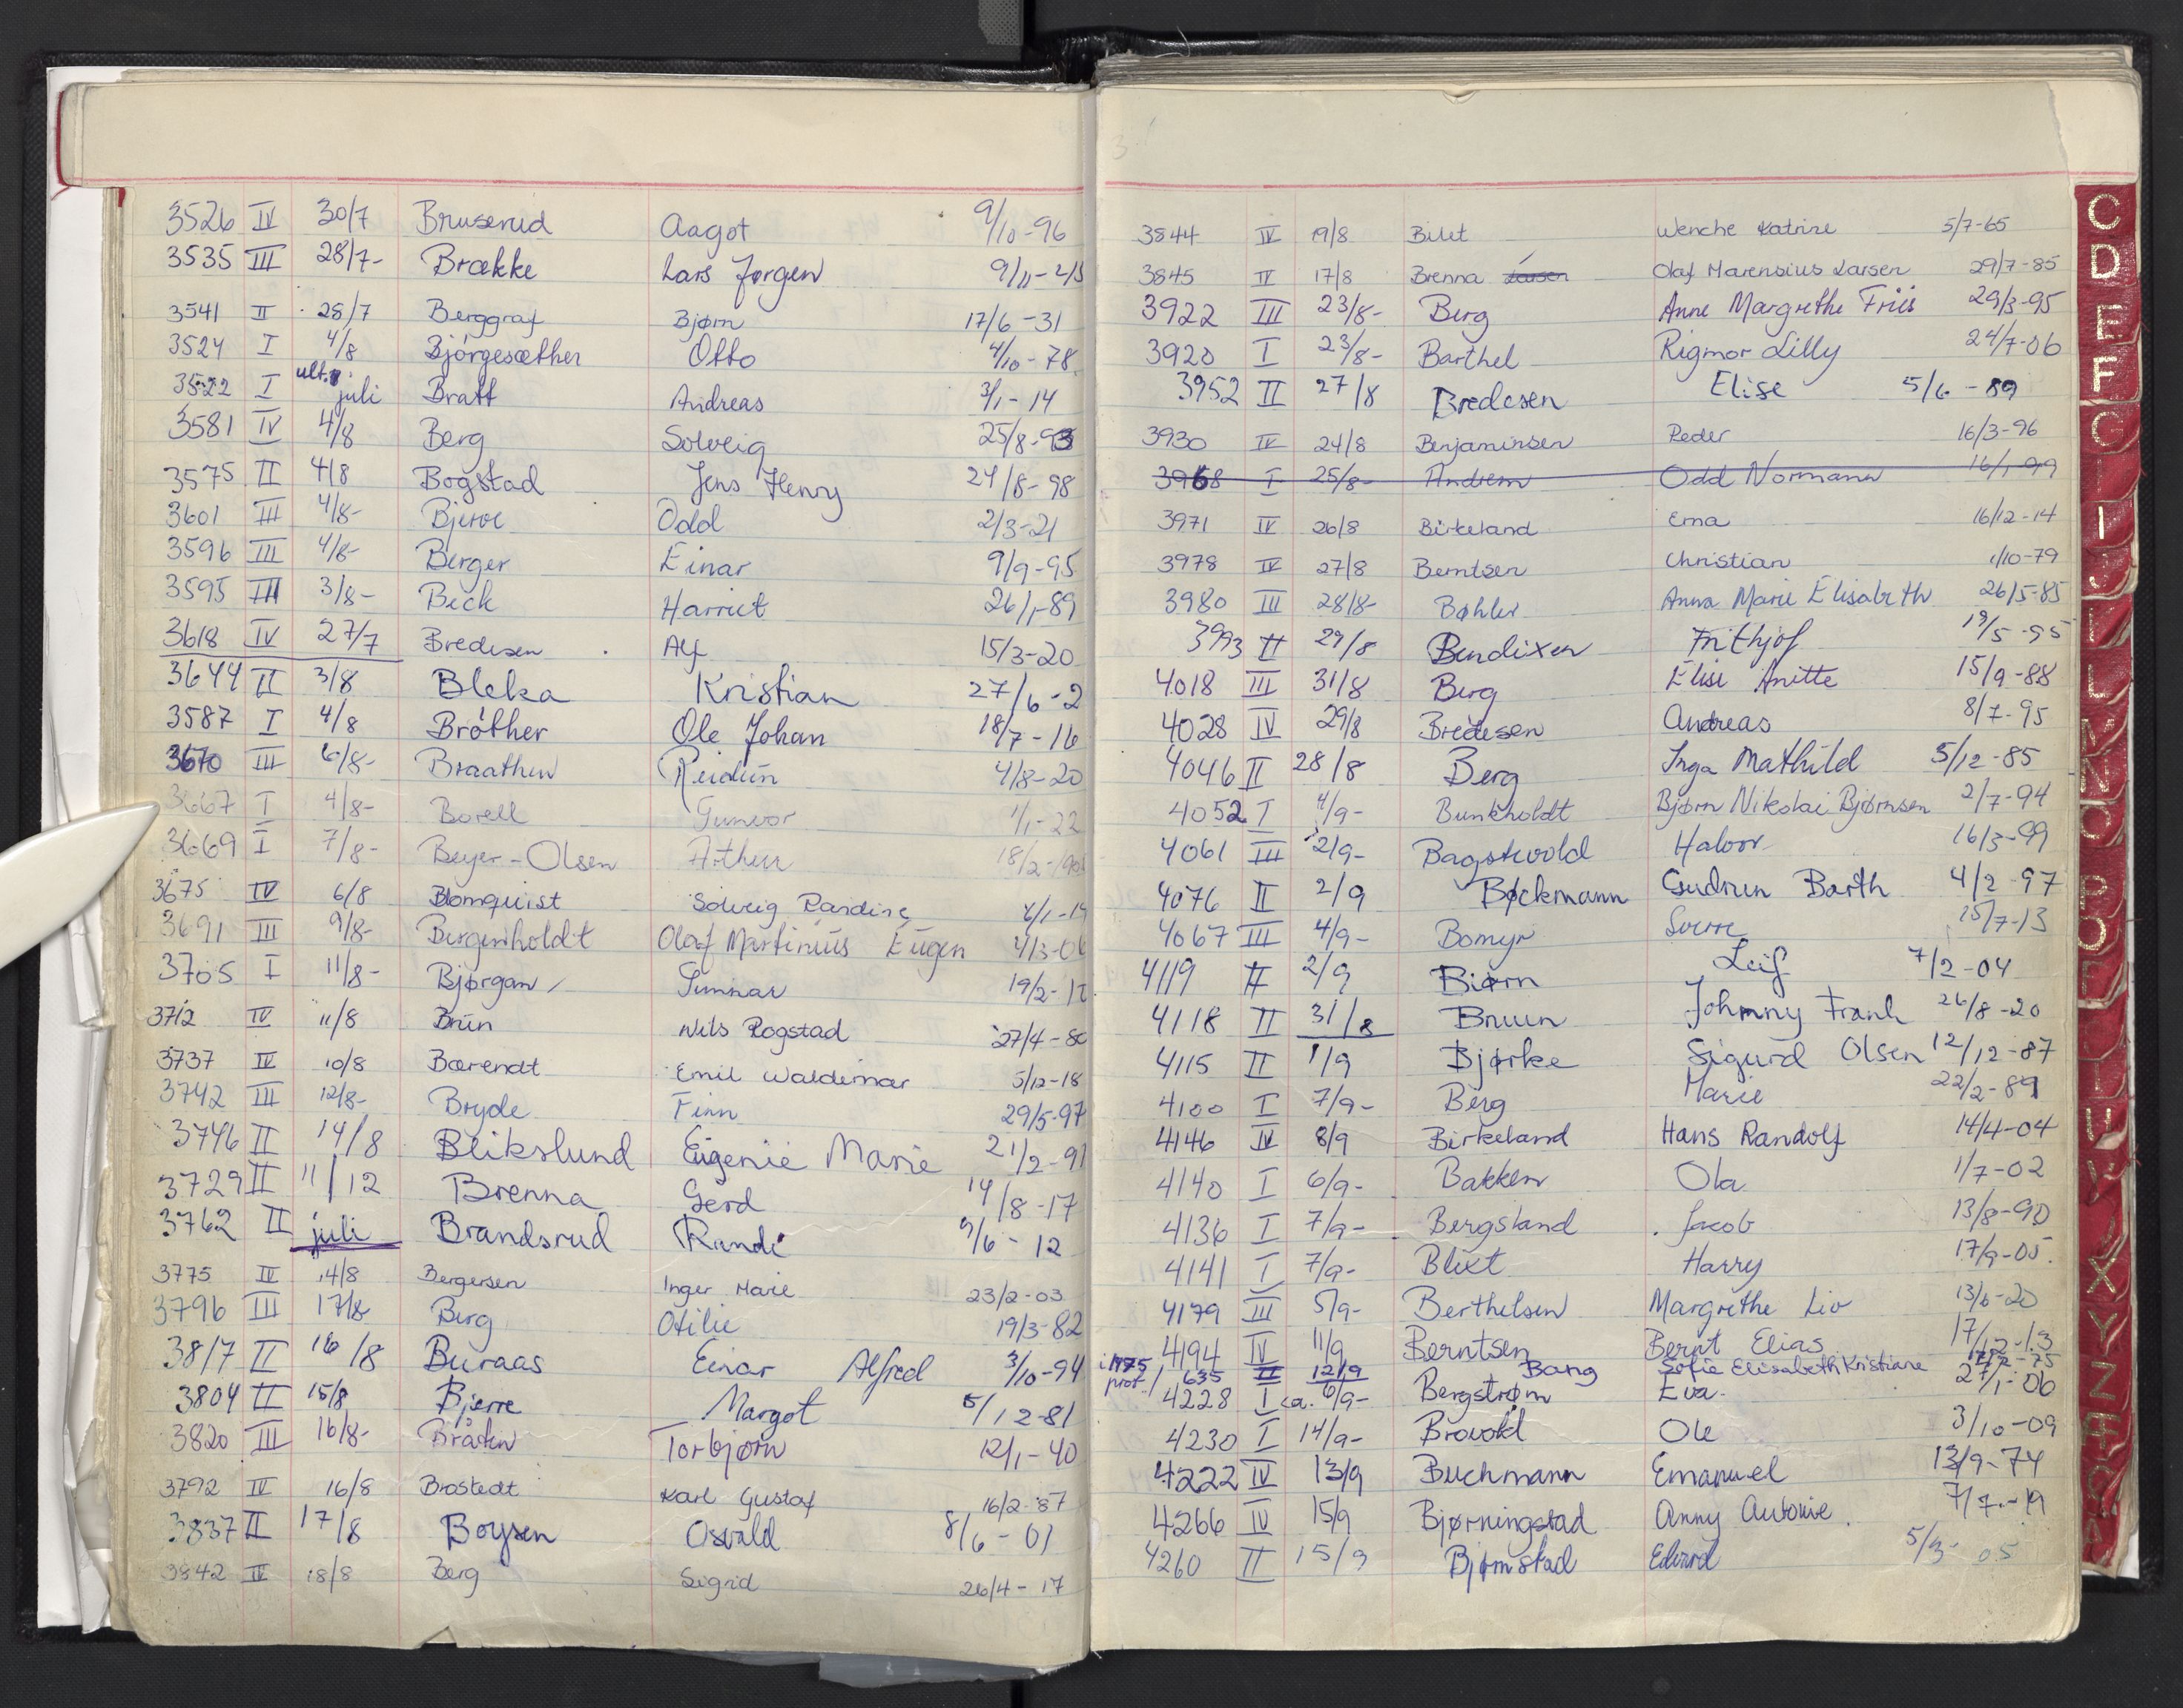 3526 IV 30/7 Bruserud Aagot 9/10-96
3535 III 28/7- Brække Lars Jørgen 9/11-
3541 II 28/7 Berggraf Bjørn 17/6-31
3524 I 4/8 Bjørgesæther Otto 4/10-78
3522 I ult. juli Bratt Andreas 3/1-14
3581 IV 4/8 Berg Solveig 25/8-93
3575 II 4/8 Bogstad Jens Henry 24/8-98
3601 III 4/8- Bjerve Odd 2/3-21
3596 III 4/8- Berger Einar 9/9-95
3595 III 3/8- Beck Harriet 26/1-89
3618 IV 27/7 Bredesen Alf 15/3-20
3644 II 3/8 Bleka Kristian 27/6-2
3587 I 4/8 Bråther Ole Johan 18/7-16
3670 III 6/8- Braathen Reidun 4/8-20
3667 I 4/8- Borell Gunvor 1/1-22
3669 I 7/8- Beyer-Olsen Arthur 18/2-
3675 IV 6/8 Blomquist Solveig Randine 6/1-19
3691 III 9/8- Bergenholdt Olaf Martinius Eugen 4/3-06
3705 I 11/8- Bjørgan Gunnar 19/2-
3712 IV 11/8 Brun Nils Rogstad 27/4-80
3737 IV 10/8 Bærendt Emil Waldemar 5/12-18
3742 III 12/8- Bryde Finn 29/5-97
3746 II 14/8 Blikslund Eugenie Marie 21/2-91
3729 II 11/12 Brenna Gerd 14/8-17
3762 II juli Brandsrud Randi 9/6-12
3775 IV 14/8 Bergersen Inger Marie 23/2-03
3796 III 17/8- Berg Otilie 19/3-82
3817 II 16/8 Buraas Einar Alfred 3/10-94
3804 II 15/8 Bjerre Margot 5/12-81
3820 III 16/8- Bråten Torbjørn 12/1-40
3792 IV 16/8 Brostedt Karl Gustaf 16/2-87
3837 II 17/8 Boysen Osvald 8/6-01
3842 IV 18/8 Berg Sigrid 26/4-17
3844 IV 19/8 Bilet Wenche Katrine 5/7-65
3845 IV 17/8 Brenna Larsen Olaf Marensius Larsen 29/7-85
3922 III 23/8- Berg Anne Margrethe Friis 29/3-95
3920 I 23/8- Barthel Rigmor Lilly 24/7-06
3952 II 27/8 Bredesen Elise 5/6-89
3930 IV 24/8 Benjaminsen Peder 16/3-96
3968 I 25/8- Andrem Odd Normann 16/1-99
3971 IV 26/8 Birkeland Erna 16/12-14
3978 IV 27/8 Berntsen Christian 1/10-79
3980 III 28/8- Bøhler Anna Marie Elisabeth 26/5-85
3993 II 29/8 Bendixen Frithjof 19/5-95
4018 III 31/8 Berg Elise Anitte 15/9-88
4028 IV 29/8 Bredesen Andreas 8/7-95
4046 II 28/8 Berg Inga Mathild 5/12-85
4052 I 4/9- Bunkholdt Bjørn Nikolai Bjørnsen 2/7-94
4061 III 2/9- Bagstevold Halvor 16/3-99
4076 II 2/9 Bøckmann Gudrun Barth 4/2-97
4067 III 4/9- Bomyr Sverre 15/7-13
4119 II 2/9 Biørn Leif 7/2-04
4118 II 31/8 Bruun Johnny Frank 26/8-20
4115 II 1/9 Bjørke Sigurd Olsen 12/12-87
4100 I 7/9- Berg Marie 22/2-89
4146 IV 8/9 Birkeland Hans Randolf 14/4-04
4140 I 6/9- Bakken Ola 1/7-02
4136 I 7/9- Bergsland Jacob 13/8-90
4141 I 7/9- Blixt Harry 17/9-05
4179 III 5/9- Berthelsen Margrethe Liv 13/6-20
4194 IV 11/9 Berntsen Bernt Elias 17/12-13
i 1975 prot. / 635 II 12/9 Bang Sofie Elisabeth Kristiane
4228 I ca. 6/9- Bergstrøm Eva 27/1-06
4230 I 14/9- Brovold Ole 3/10-09
4222 IV 13/9 Buchmann Emanuel 13/9-74
4266 IV 15/9 Bjørningstad Anny Autonie 7/7-19
4260 II 15/9 Bjørnstad Edvard 5/3-05
C
D
E
F
G
I
J
L
N
O
P
X
Y
Z